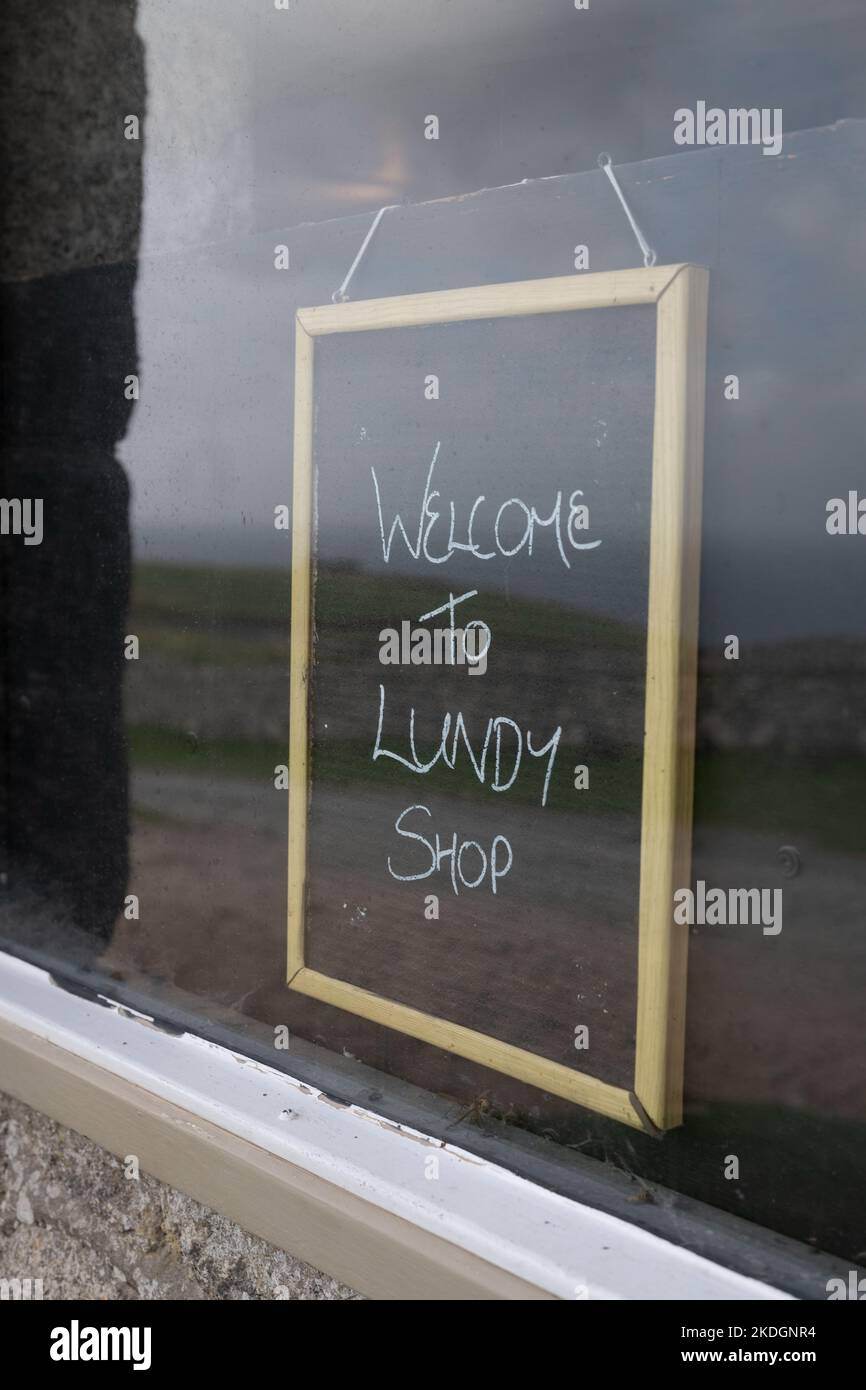 WELCOME
TO
LUNDY
SHOP
alamy
alamy
Image ID: 2KDGNR4
www.alamy.com